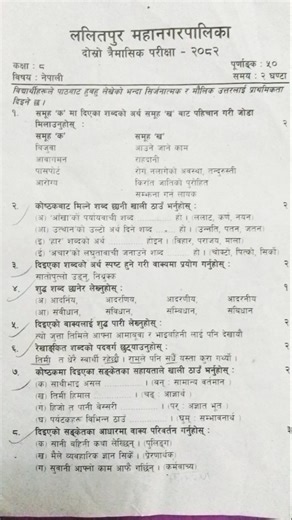 ललितपुर महानगरपालिका
दोस्रो त्रैमासिक परीक्षा - २०८२
कक्षा : ८ पूर्णाङ्क : ५०
विषय : नेपाली समय : २ घण्टा
विद्यार्थीहरूले पाठबाट हुबहु लेखेको भन्दा सिर्जनात्मक र मौलिक उत्तरलाई प्राथमिकता
दिइने छ ।
१. समूह 'क' मा दिएका शब्दको अर्थ समूह 'ख' बाट पहिचान गरी जोडा
मिलाउनुहोस् : २
समूह 'क' समूह 'ख'
बिजुवा आउने जाने काम
आवागमन राहदानी
पासपोर्ट रोग नलागेको अवस्था, तन्दुरुस्ती
आरोग्य किराँत जातिको पुरोहित
सम्झना गर्न लायक
२. कोष्ठकबाट मिल्ने शब्द छानी खाली ठाउँ भर्नुहोस् : २
(अ) 'आँखा'को पर्यायवाची शब्द हो । (ललाट, कर्ण, नयन)
(आ) उत्थानको उल्टो अर्थ दिने शब्द हो । (उन्नति, पतन, जतन)
(इ) 'हार' शब्दको अर्थ होइन । (बिहार, पराजय, माला)
(ई) 'अचार'को लघुतावाची जनाउने शब्द हो । (चोक्टो, पिल्को, सिको)
३. दिइएका शब्दको अर्थ स्पष्ट हुने गरी वाक्यमा प्रयोग गर्नुहोस् : २
सातोपुत्लो उड्नु, निथ्रुक्क
४. शुद्ध शब्द छानेर लेख्नुहोस् : १
अ) आदनिय, आदरणिय, आदरणीय, आदरनीय
आ) संबीधान, संविधान, सम्विधान, संबिधान
५. दिइएको वाक्यलाई शुद्ध पारी लेख्नुहोस् :
त्यो जुत्ता तिमिले आफ्ना आमाबुवा र भाइबहिनी लाई पनि देखायौ
६. रेखाङ्कित शब्दको पदवर्ग छुट्याउनुहोस् :
तिमी त धेरै स्वार्थी रहेछौ । रामले पनि सधैँ यस्ता कुरा गर्थ्यो ।
७. कोष्ठकमा दिइएका सङ्केतका सहायताले खाली ठाउँ भर्नुहोस् :
(क) साथीभाइ असल । (बन् : सामान्य वर्तमान)
(ख) तिमी हिमाल । (चढ् : आज्ञार्थ)
(ग) हिजो त पानी बेस्सरी । (पर् : अज्ञात भूत)
(घ) पर्यटकहरू विभिन्न ठाउँ । (घुम् : सम्भावनार्थ)
८. दिइएको सङ्केतका आधारमा वाक्य परिवर्तन गर्नुहोस् :
(क) सानी बहिनी कथा लेख्छिन् । (पुलिङ्ग)
(ख) मैले व्यवहारिक ज्ञान सिकेँ । (प्रेरणार्थक)
(ग) सुवानी आफ्नो काम आफैँ गर्छिन् । (कर्मवाच्य)